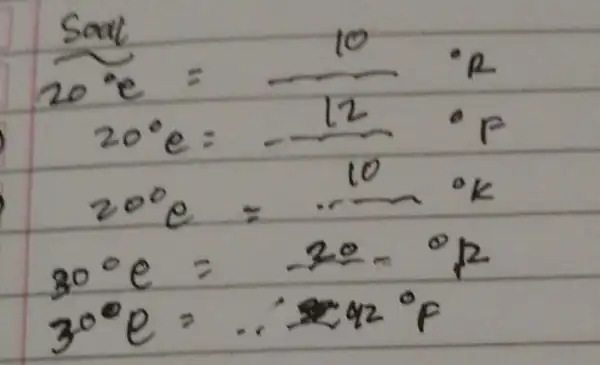 Soal
20 °C = 10 °R
20 °C = 12 °F
20 °C = 10 °K
30 °C = 20 °R
30 °C = 42 °F